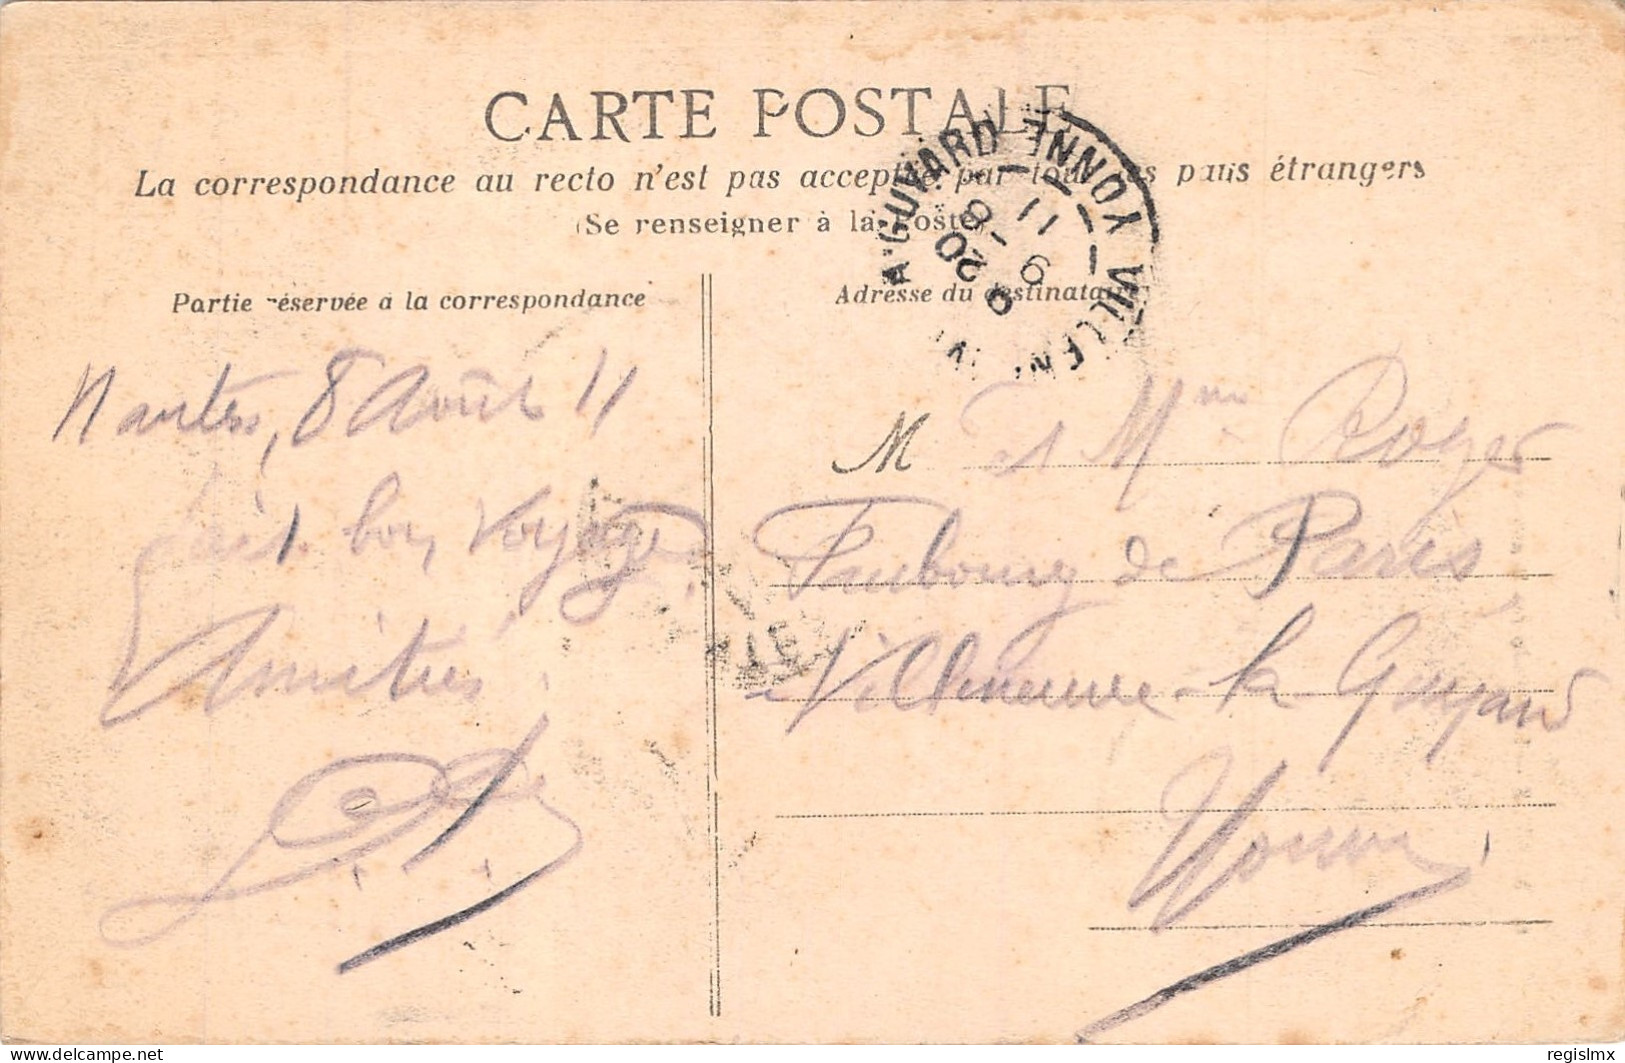 CARTE POSTALE
La correspondance au recto n'est pas acceptée par tous les pays étrangers
(Se renseigner à la Poste)
Partie réservée à la correspondance
Nantes, 8 Août 11
Fait bon voyage
Amitiés
Adresse du destinataire
M et Mme Roger
Faubourg de Paris
Villeneuve-la-Guyard
Yonne
VILLENEUVE LA GUYARD YONNE
20
9 - 8
11
delcampe.net
regislmx